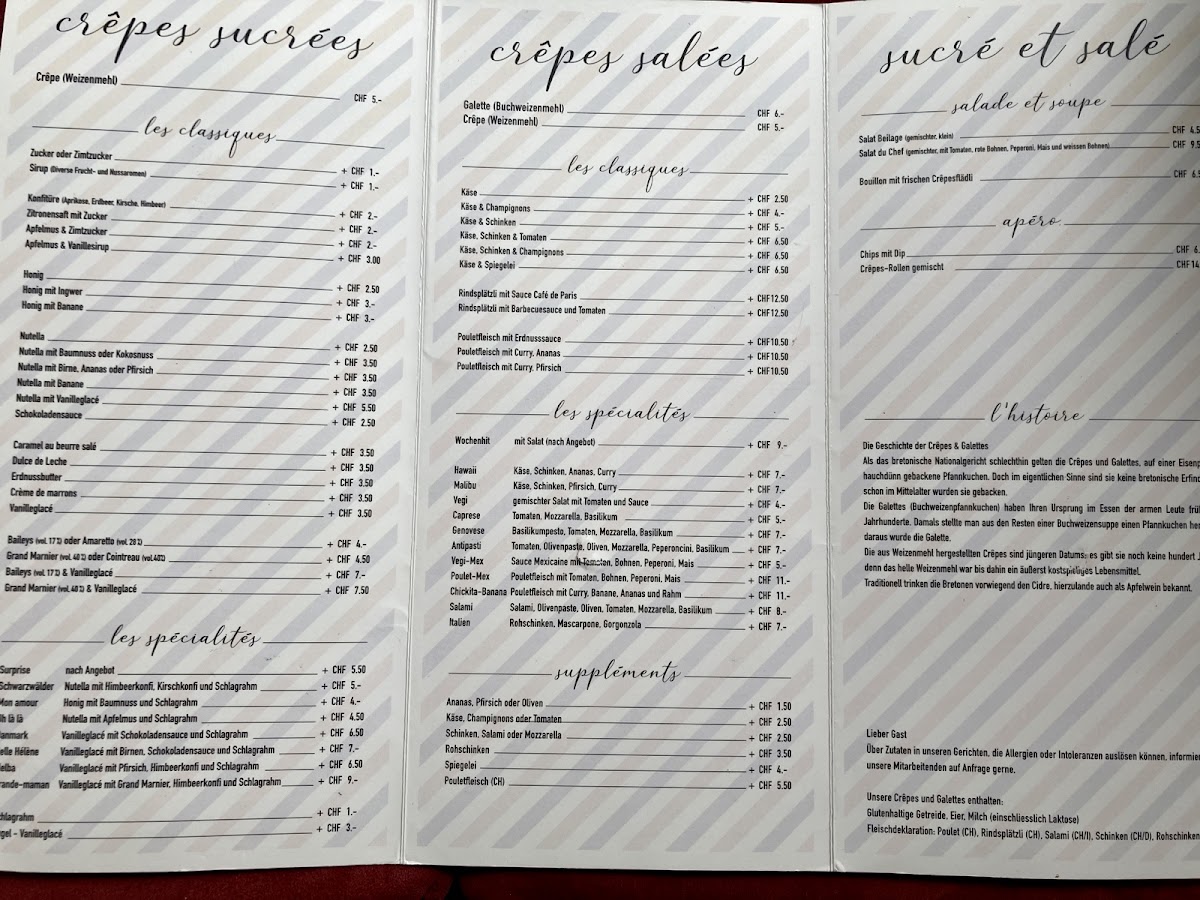 crêpes sucrées
Crêpe (Weizenmehl) CHF 5.-
les classiques
Zucker oder Zimtzucker + CHF 1.-
Sirup (Diverse Frucht- und Nussaromen) + CHF 1.-
Konfitüre (Aprikose, Erdbeer, Kirsche, Himbeer) + CHF 2.-
Zitronensaft mit Zucker + CHF 2.-
Apfelmus & Zimtzucker + CHF 2.-
Apfelmus & Vanillesirup + CHF 3.00
Honig + CHF 2.50
Honig mit Ingwer + CHF 3.-
Honig mit Banane + CHF 3.-
Nutella + CHF 2.50
Nutella mit Baumnuss oder Kokosnuss + CHF 3.50
Nutella mit Birne, Ananas oder Pfirsich + CHF 3.50
Nutella mit Banane + CHF 3.50
Nutella mit Vanilleglacé + CHF 5.50
Schokoladensauce + CHF 2.50
Caramel au beurre salé + CHF 3.50
Dulce de Leche + CHF 3.50
Erdnussbutter + CHF 3.50
Crème de marrons + CHF 3.50
Vanilleglacé + CHF 3.50
Baileys (vol. 17%) oder Amaretto (vol. 28%) + CHF 4.-
Grand Marnier (vol. 40%) oder Cointreau (vol.40%) + CHF 4.50
Baileys (vol. 17%) & Vanilleglacé + CHF 7.-
Grand Marnier (vol. 40%) & Vanilleglacé + CHF 7.50
les spécialités
Surprise nach Angebot + CHF 5.50
Schwarzwälder Nutella mit Himbeerkonfi, Kirschkonfi und Schlagrahm + CHF 5.-
Mon amour Honig mit Baumnuss und Schlagrahm + CHF 4.-
h là là Nutella mit Apfelmus und Schlagrahm + CHF 4.50
anmark Vanilleglacé mit Schokoladensauce und Schlagrahm + CHF 6.50
elle Hélène Vanilleglacé mit Birnen, Schokoladensauce und Schlagrahm + CHF 7.-
elba Vanilleglacé mit Pfirsich, Himbeerkonfi und Schlagrahm + CHF 6.50
ande-maman Vanilleglacé mit Grand Marnier, Himbeerkonfi und Schlagrahm + CHF 9.-
hlagrahm + CHF 1.-
gel - Vanilleglacé + CHF 3.-
crêpes salées
Galette (Buchweizenmehl) CHF 6.-
Crêpe (Weizenmehl) CHF 5.-
les classiques
Käse + CHF 2.50
Käse & Champignons + CHF 4.-
Käse & Schinken + CHF 5.-
Käse, Schinken & Tomaten + CHF 6.50
Käse, Schinken & Champignons + CHF 6.50
Käse & Spiegelei + CHF 6.50
Rindsplätzli mit Sauce Café de Paris + CHF12.50
Rindsplätzli mit Barbecuesauce und Tomaten + CHF12.50
Pouletfleisch mit Erdnusssauce + CHF10.50
Pouletfleisch mit Curry, Ananas + CHF10.50
Pouletfleisch mit Curry, Pfirsich + CHF10.50
les spécialités
Wochenhit mit Salat (nach Angebot) + CHF 9.-
Hawaii Käse, Schinken, Ananas, Curry + CHF 7.-
Malibu Käse, Schinken, Pfirsich, Curry + CHF 7.-
Vegi gemischter Salat mit Tomaten und Sauce + CHF 4.-
Caprese Tomaten, Mozzarella, Basilikum + CHF 5.-
Genovese Basilikumpesto, Tomaten, Mozzarella, Basilikum + CHF 7.-
Antipasti Tomaten, Olivenpaste, Oliven, Mozzarella, Peperoncini, Basilikum + CHF 7.-
Vegi-Mex Sauce Mexicaine mit Tomaten, Bohnen, Peperoni, Mais + CHF 5.-
Poulet-Mex Pouletfleisch mit Tomaten, Bohnen, Peperoni, Mais + CHF 11.-
Chickita-Banana Pouletfleisch mit Curry, Banane, Ananas und Rahm + CHF 11.-
Salami Salami, Olivenpaste, Oliven, Tomaten, Mozzarella, Basilikum + CHF 8.-
Italien Rohschinken, Mascarpone, Gorgonzola + CHF 7.-
suppléments
Ananas, Pfirsich oder Oliven + CHF 1.50
Käse, Champignons oder Tomaten + CHF 2.50
Schinken, Salami oder Mozzarella + CHF 2.50
Rohschinken + CHF 3.50
Spiegelei + CHF 4.-
Pouletfleisch (CH) + CHF 5.50
sucré et salé
salade et soupe
Salat Beilage (gemischter, klein) CHF 4.5
Salat du Chef (gemischter, mit Tomaten, rote Bohnen, Peperoni, Mais und weissen Bohnen) CHF 9.5
Bouillon mit frischen Crêpesflädli CHF 6.5
apéro
Chips mit Dip CHF 6.
Crêpes-Rollen gemischt CHF14
l'histoire
Die Geschichte der Crêpes & Galettes
Als das bretonische Nationalgericht schlechthin gelten die Crêpes und Galettes, auf einer Eisenp
hauchdünn gebackene Pfannkuchen. Doch im eigentlichen Sinne sind sie keine bretonische Erfind
schon im Mittelalter wurden sie gebacken.
Die Galettes (Buchweizenpfannkuchen) haben Ihren Ursprung im Essen der armen Leute früh
Jahrhunderte. Damals stellte man aus den Resten einer Buchweizensuppe einen Pfannkuchen her
daraus wurde die Galette.
Die aus Weizenmehl hergestellten Crêpes sind jüngeren Datums; es gibt sie noch keine hundert J
denn das helle Weizenmehl war bis dahin ein äußerst kostspieliges Lebensmittel.
Traditionell trinken die Bretonen vorwiegend den Cidre, hierzulande auch als Apfelwein bekannt.
Lieber Gast
Über Zutaten in unseren Gerichten, die Allergien oder Intoleranzen auslösen können, informie
unsere Mitarbeitenden auf Anfrage gerne.
Unsere Crêpes und Galettes enthalten:
Glutenhaltige Getreide, Eier, Milch (einschliesslich Laktose)
Fleischdeklaration: Poulet (CH), Rindsplätzli (CH), Salami (CH/I), Schinken (CH/D), Rohschinken